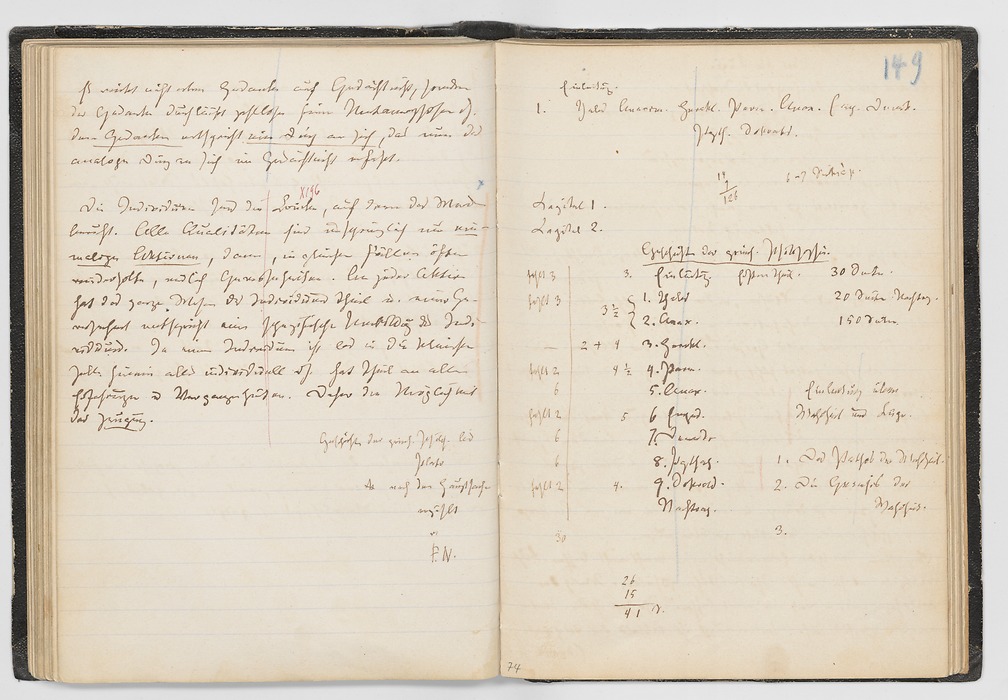 Es wirkt nicht ein Gedanke auf Gedächtniß, sondern
der Gedanke durchläuft zahllose feine Metamorphosen
dem Gedanken entspricht ein Ding an sich, das nun das
analoge Ding an sich im Gedächtniß erfaßt.
X196
Die Individuen sind die Brücken, auf denen das Werden
beruht. Alle Qualitäten sind ursprünglich nur ein-
malige Aktionen, dann, in gleichen Fällen öfter
wiederholte, endlich Gewohnheiten. An jeder Aktion
hat das ganze Wesen des Individuums Theil u. einer Ge-
wohnheit entspricht eine spezifische Umbildung des Indi-
viduums. In einem Individuum ist bis in die kleinsten
Zellen hinein alles individuell d.h. hat Theil an allen
Erfahrungen u Vergangenheiten. Daher die Möglichkeit
der Zeugung.
Geschichte der griech. Philos. bis
Plato
nach der Hauptsache
erzählt
v.
F. N.
149
Einleitung.
1. Thales Anaxim. Herakl. Parm. Anax. Emp. Democ.
Pyth. Sokrat.
18
7
126
Kapitel 1.
Kapitel 2.
Geschichte der griech. Philosophie.
fehlt 3 3. Einleitung 30 Seiten.
fehlt 3 3 ½ 1. Thales 20 Seiten Nachtrag.
2. Anax. 150 Seiten
— 2 + 4 3. Herakl.
fehlt 2 4 ½ 4. Parm.
6 5. Anax. Einleitung über
fehlt 2 5 6 Emped. Wahrheit und Lüge.
6 7. Democr
6 8. Pythag. 1. Das Pathos der Wahrheit.
fehlt 2 4. 9. Sokrat. 2. Die Genesis der
Nachtrag. Wahrheit.
30 3.
26
15
41 S.
74